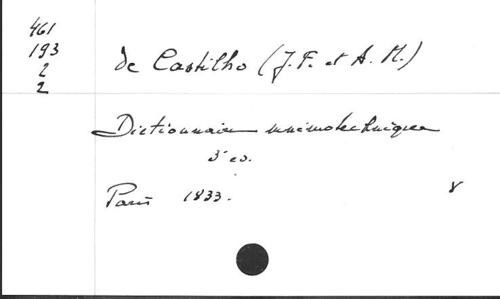 461
193
2
2
de Castilho (J. F. et A. M.)
Dictionnaire mnémotechnique
3e éd.
Paris 1833. 8